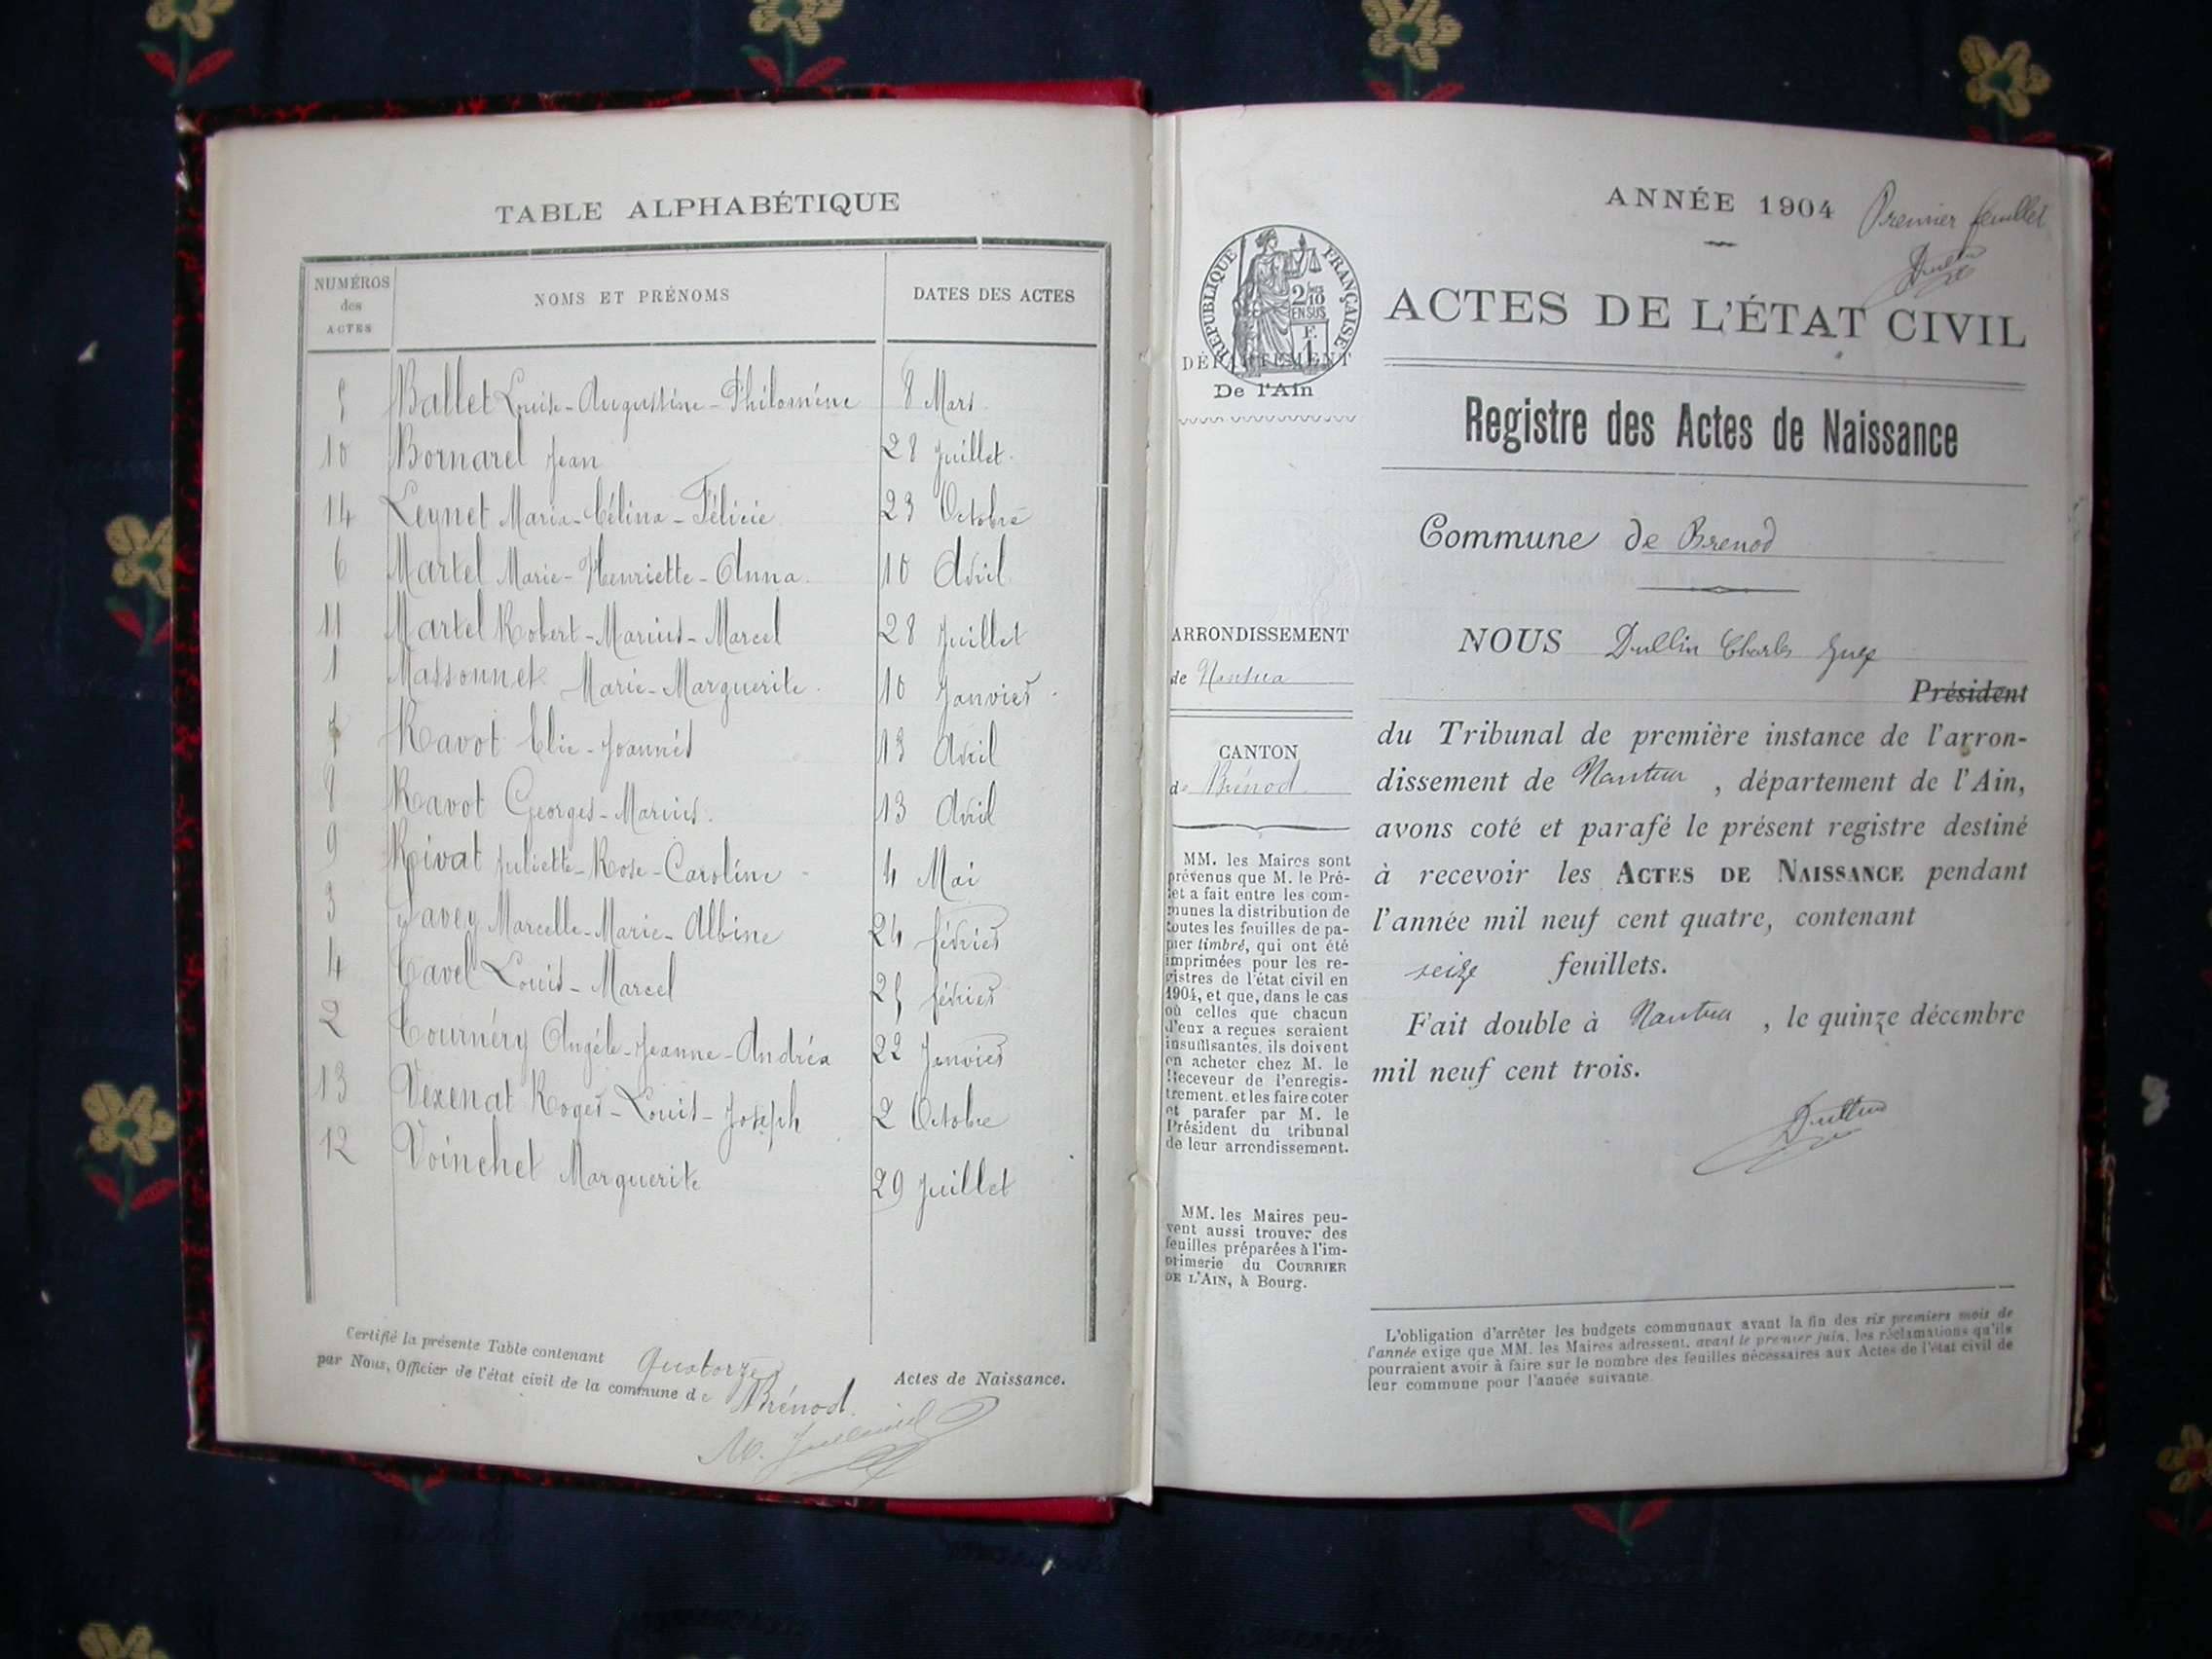 TABLE ALPHABÉTIQUE
NUMÉROS des ACTES | NOMS ET PRÉNOMS | DATES DES ACTES
5 Ballet Louise-Augustine-Philomène 8 Mars
10 Bornarel Jean 28 Juillet
14 Leynet Maria-Célina-Félicie 23 Octobre
6 Martel Marie-Henriette-Anna 10 Avril
11 Martel Robert-Marius-Marcel 28 Juillet
1 Massonnet Marie-Marguerite 10 Janvier
7 Ravot Elie-Joannès 13 Avril
8 Ravot Georges-Marius 13 Avril
9 Rivat Juliette-Rose-Caroline 4 Mai
3 Savey Marcelle-Marie-Albine 24 février
4 Tavel Louis-Marcel 25 février
2 Tournéry Angèle-Jeanne-Andréa 22 Janvier
13 Vexenat Roger-Louis-Joseph 2 Octobre
12 Voinchet Marguerite 29 Juillet
Certifié la présente Table contenant quatorze Actes de Naissance.
par Nous, Officier de l'état civil de la commune de Brénod.
ANNÉE 1904 Premier feuillet
RÉPUBLIQUE FRANÇAISE
2/10 EN SUS
F. 1
ACTES DE L'ÉTAT CIVIL
DÉPARTEMENT
De l'Ain
Registre des Actes de Naissance
Commune de Brenod
ARRONDISSEMENT
de Nantua
CANTON
de Brénod
MM. les Maires sont
prévenus que M. le Pré-
fet a fait entre les com-
munes la distribution de
toutes les feuilles de pa-
pier timbré, qui ont été
imprimées pour les re-
gistres de l'état civil en
1904, et que, dans le cas
où celles que chacun
d'eux a reçues seraient
insuffisantes, ils doivent
en acheter chez M. le
Receveur de l'enregis-
trement, et les faire coter
et parafer par M. le
Président du tribunal
de leur arrondissement.
MM. les Maires peu-
vent aussi trouver des
feuilles préparées à l'im-
primerie du COURRIER
DE L'AIN, à Bourg.
NOUS Dullin Charles Juge
Président
du Tribunal de première instance de l'arron-
dissement de Nantua, département de l'Ain,
avons coté et parafé le présent registre destiné
à recevoir les ACTES DE NAISSANCE pendant
l'année mil neuf cent quatre, contenant
seize feuillets.
Fait double à Nantua, le quinze décembre
mil neuf cent trois.
Dullin
L'obligation d'arrêter les budgets communaux avant la fin des six premiers mois de
l'année exige que MM. les Maires adressent, avant le premier juin, les réclamations qu'ils
pourraient avoir à faire sur le nombre des feuilles nécessaires aux Actes de l'état civil de
leur commune pour l'année suivante.